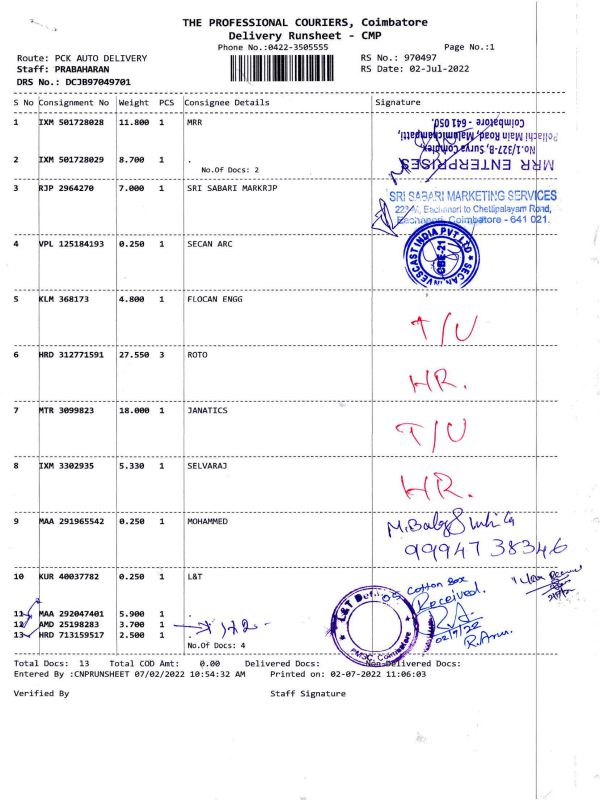 THE PROFESSIONAL COURIERS, Coimbatore
Delivery Runsheet - CMP
Phone No.:0422-3505555
Page No.:1
Route: PCK AUTO DELIVERY
RS No.: 970497
Staff: PRABAHARAN
RS Date: 02-Jul-2022
DRS No.: DCJB97049701
S No Consignment No Weight PCS Consignee Details Signature
1 IXM 501728028 11.800 1 MRR
MRR ENTERPRISES
No.1/327-B, Surya Complex,
Pollachi Main Road, Malumichampatti,
Coimbatore - 641 050.
2 IXM 501728029 8.700 1 .
No.Of Docs: 2
3 RJP 2964270 7.000 1 SRI SABARI MARKRJP
SRI SABARI MARKETING SERVICES
Eachanari to Chettipalayam Road,
Eachanari, Coimbatore - 641 021.
4 VPL 125184193 0.250 1 SECAN ARC
SECAN INVESCAST INDIA PVT LTD
CBE-21
5 KLM 368173 4.800 1 FLOCAN ENGG
T/U
6 HRD 312771591 27.550 3 ROTO
HR.
7 MTR 3099823 18.000 1 JANATICS
T/U
8 IXM 3302935 5.330 1 SELVARAJ
HR.
9 MAA 291965542 0.250 1 MOHAMMED
99947 38346
10 KUR 40037782 0.250 1 L&T
L&T Coimbatore
Cotton Box
Received.
02/7/22
11 MAA 292047401 5.900 1 .
12 AMD 25198283 3.700 1 .
13 HRD 713159517 2.500 1 .
No.Of Docs: 4
Total Docs: 13 Total COD Amt: 0.00 Delivered Docs: Non-Delivered Docs:
Entered By :CNPRUNSHEET 07/02/2022 10:54:32 AM Printed on: 02-07-2022 11:06:03
Verified By Staff Signature